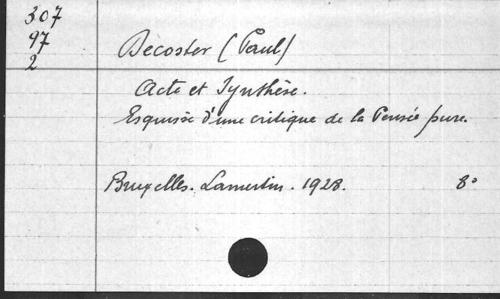 307
97
2
Decoster (Paul)
Acte et Synthèse.
Esquisse d'une critique de la Pensée pure.
Bruxelles. Lamertin. 1928. 8°